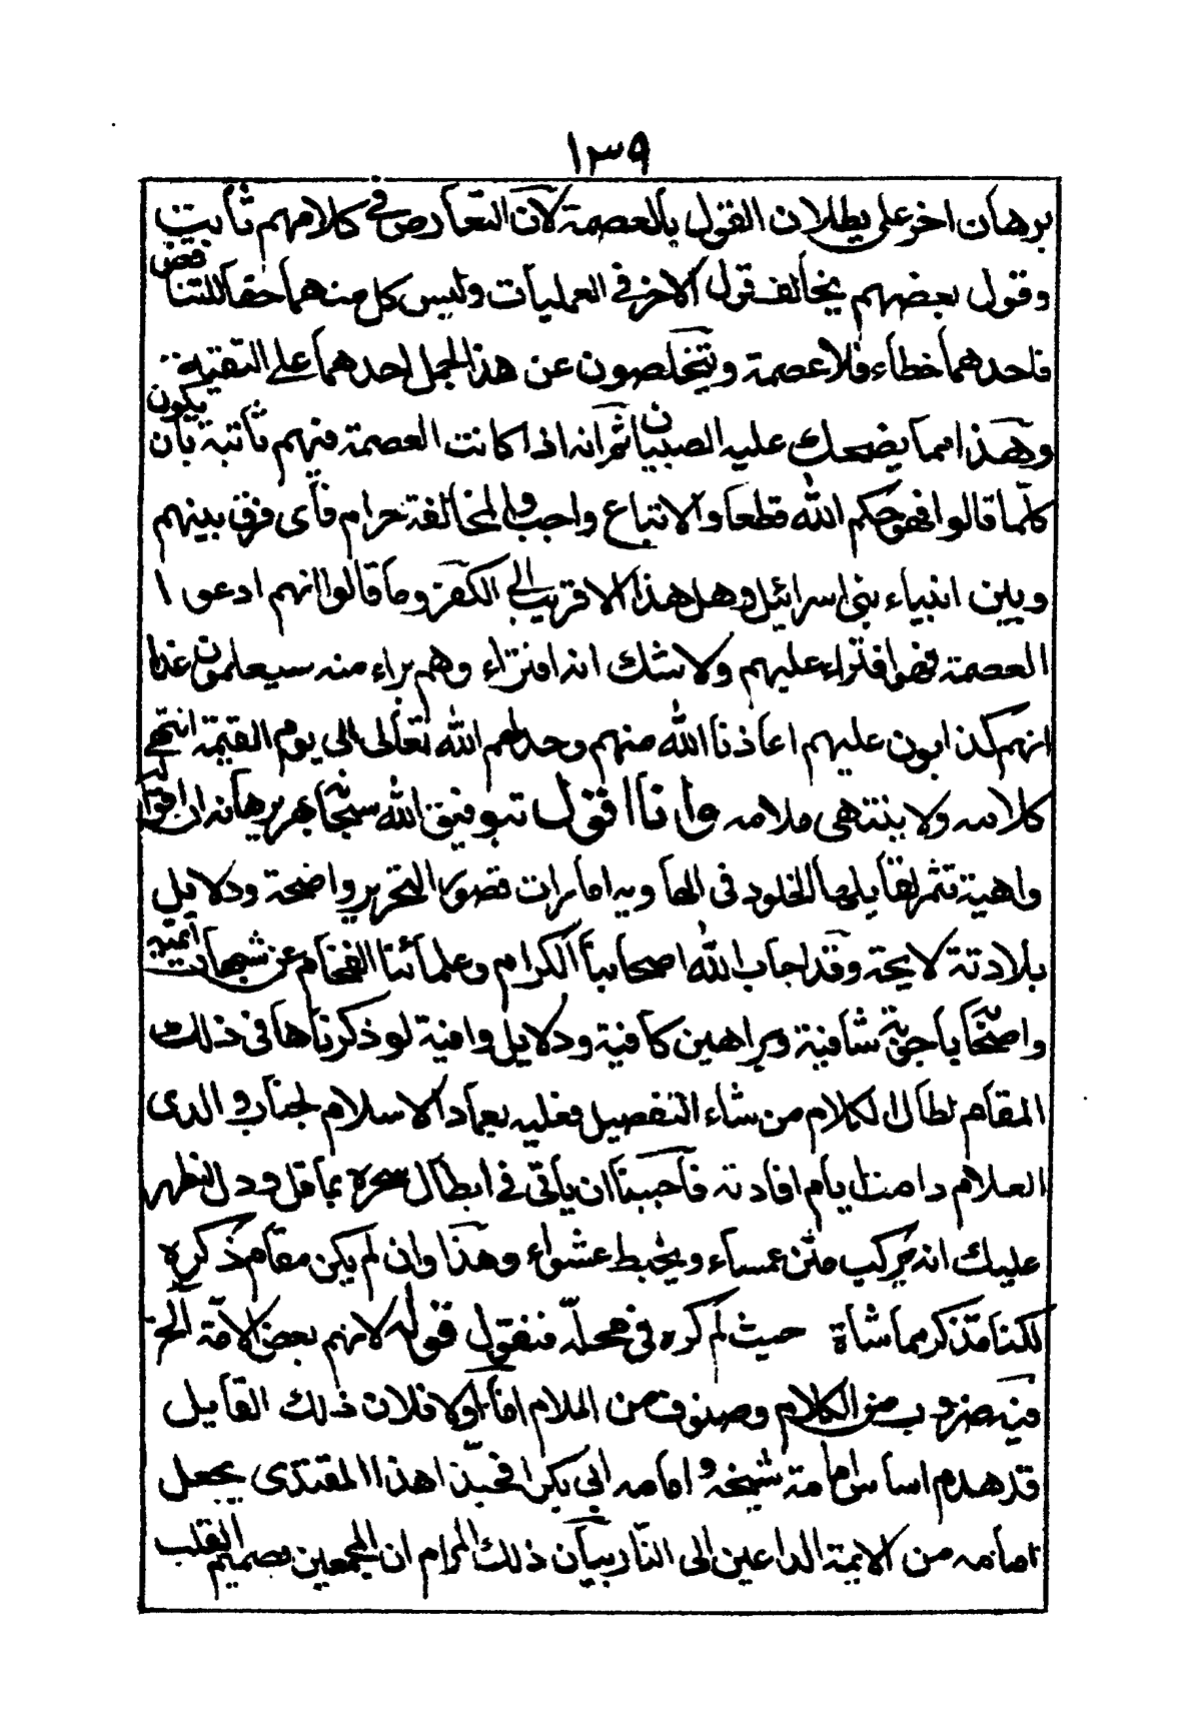 ١٣٩
برهان اخر على بطلان القول بالعصمة لان التعارض في كلامهم ثابت
وقول بعضهم يخالف قول الاخر في العمليات وليس كل منهما حقا للتناقض
فاحدهما خطاء فلا عصمة ويتخلصون عن هذا لحمل احدهما على التقية
وهذا مما يضحك عليه الصبيان ثم انه اذا كانت العصمة فيهم ثابتة بان يكون
كلما قالوا فهو حكم الله قطعا والاتباع واجب والمخالفة حرام فاى فرق بينهم
وبين انبياء بنى اسرائيل وهل هذا الا قريب الى الكفر وما قالوا انهم ادعوا
العصمة فهو افتراء عليهم ولا شك انه افتراء وهم براء منه سيعلمون غدا
انهم كذابون عليهم اعاذنا الله منهم وحدلهم الله تعالى الى يوم القيمة انتهى
كلامه ولا ينتهى ملامه وانا اقول بتوفيق الله سبحانه براهانه ان اقوال
واهية تثمر لقايلها الخلود فى الهاوية امارات قصور التحرير واضحة ودلايل
بلادته لايحة وقد اجاب الله اصحابنا الكرام وعلمائنا الفخام عن شبهات ائمته
واضحا باجوبة شافية وبراهين كافية ودلايل وافية لو ذكرناها فى ذلك
المقام لطال الكلام من شاء التفصيل فعليه بعماد الاسلام لجناب والدى
العلام دامت ايام افادته فاحببنا ان يأتى فى ابطال سحره بما قل ودل لنظهر
عليك انه يركب متن عمياء ويخبط عشواء وهذا وان لم يكن مقام ذكره
لكنا قد ذكر مماشاة حيث لم كره فى محله فنقول قوله لانهم بعض الامة الخ
فيه ضروب من الكلام وصنوف من الملام اما اولا فلان ذلك القايل
قد هدم اساس امامة شيخه وامامه ابى بكر افحبذا هذا المقتدى يجعل
امامه من الايمة الداعين الى النار بيان ذلك المرام ان المجمعين بصميم القلب